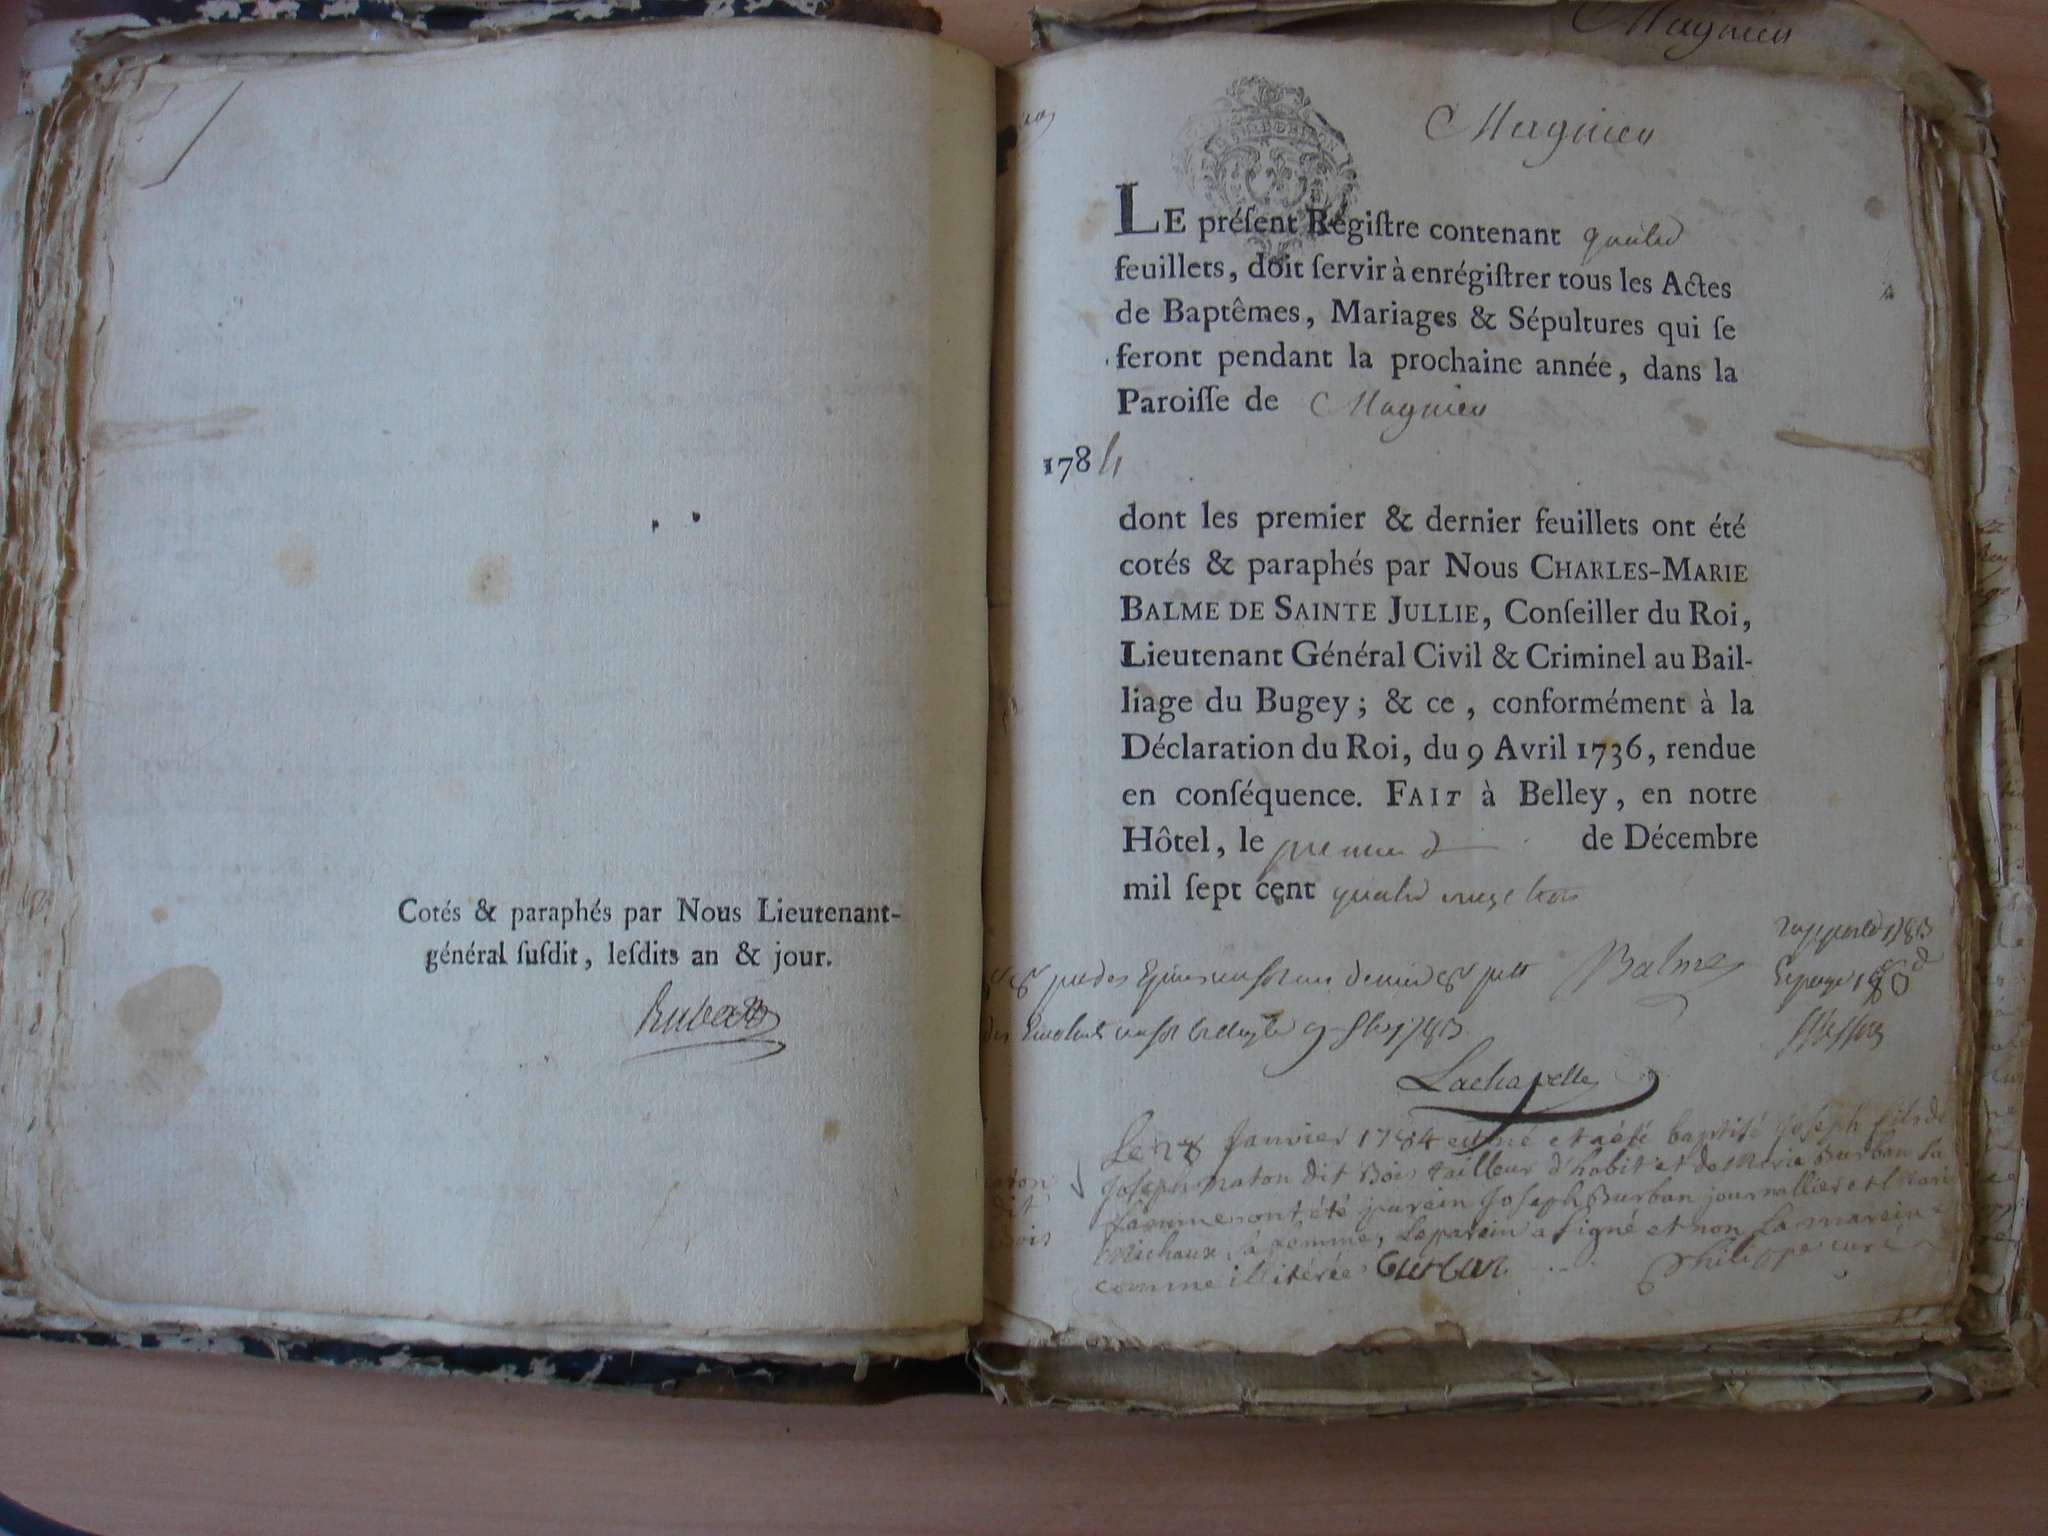 Cotés & paraphés par Nous Lieutenant-
général ſuſdit, leſdits an & jour.
Magnieu
Magnieu
LE préſent Régiſtre contenant quatre
feuillets, doit ſervir à enrégiſtrer tous les Actes
de Baptêmes, Mariages & Sépultures qui ſe
feront pendant la prochaine année, dans la
Paroiſſe de Magnieu
1784
dont les premier & dernier feuillets ont été
cotés & paraphés par Nous CHARLES-MARIE
BALME DE SAINTE JULLIE, Conſeiller du Roi,
Lieutenant Général Civil & Criminel au Bail-
liage du Bugey ; & ce , conformément à la
Déclaration du Roi, du 9 Avril 1736, rendue
en conſéquence. FAIT à Belley, en notre
Hôtel, le premier de Décembre
mil ſept cent quatre vingt trois
Balme
Lachapelle
Le Janvier 1784 est né et a été baptisé Joseph fils de
Joseph maton dit Bois tailleur d'habit et de Marie Burban sa
famme ont été parein Joseph Burban journallier et Marie
Michaux sa femme, le parein a signé et non la mareine
comme illitérée Burban Philippe curé
aton
dit
Bois